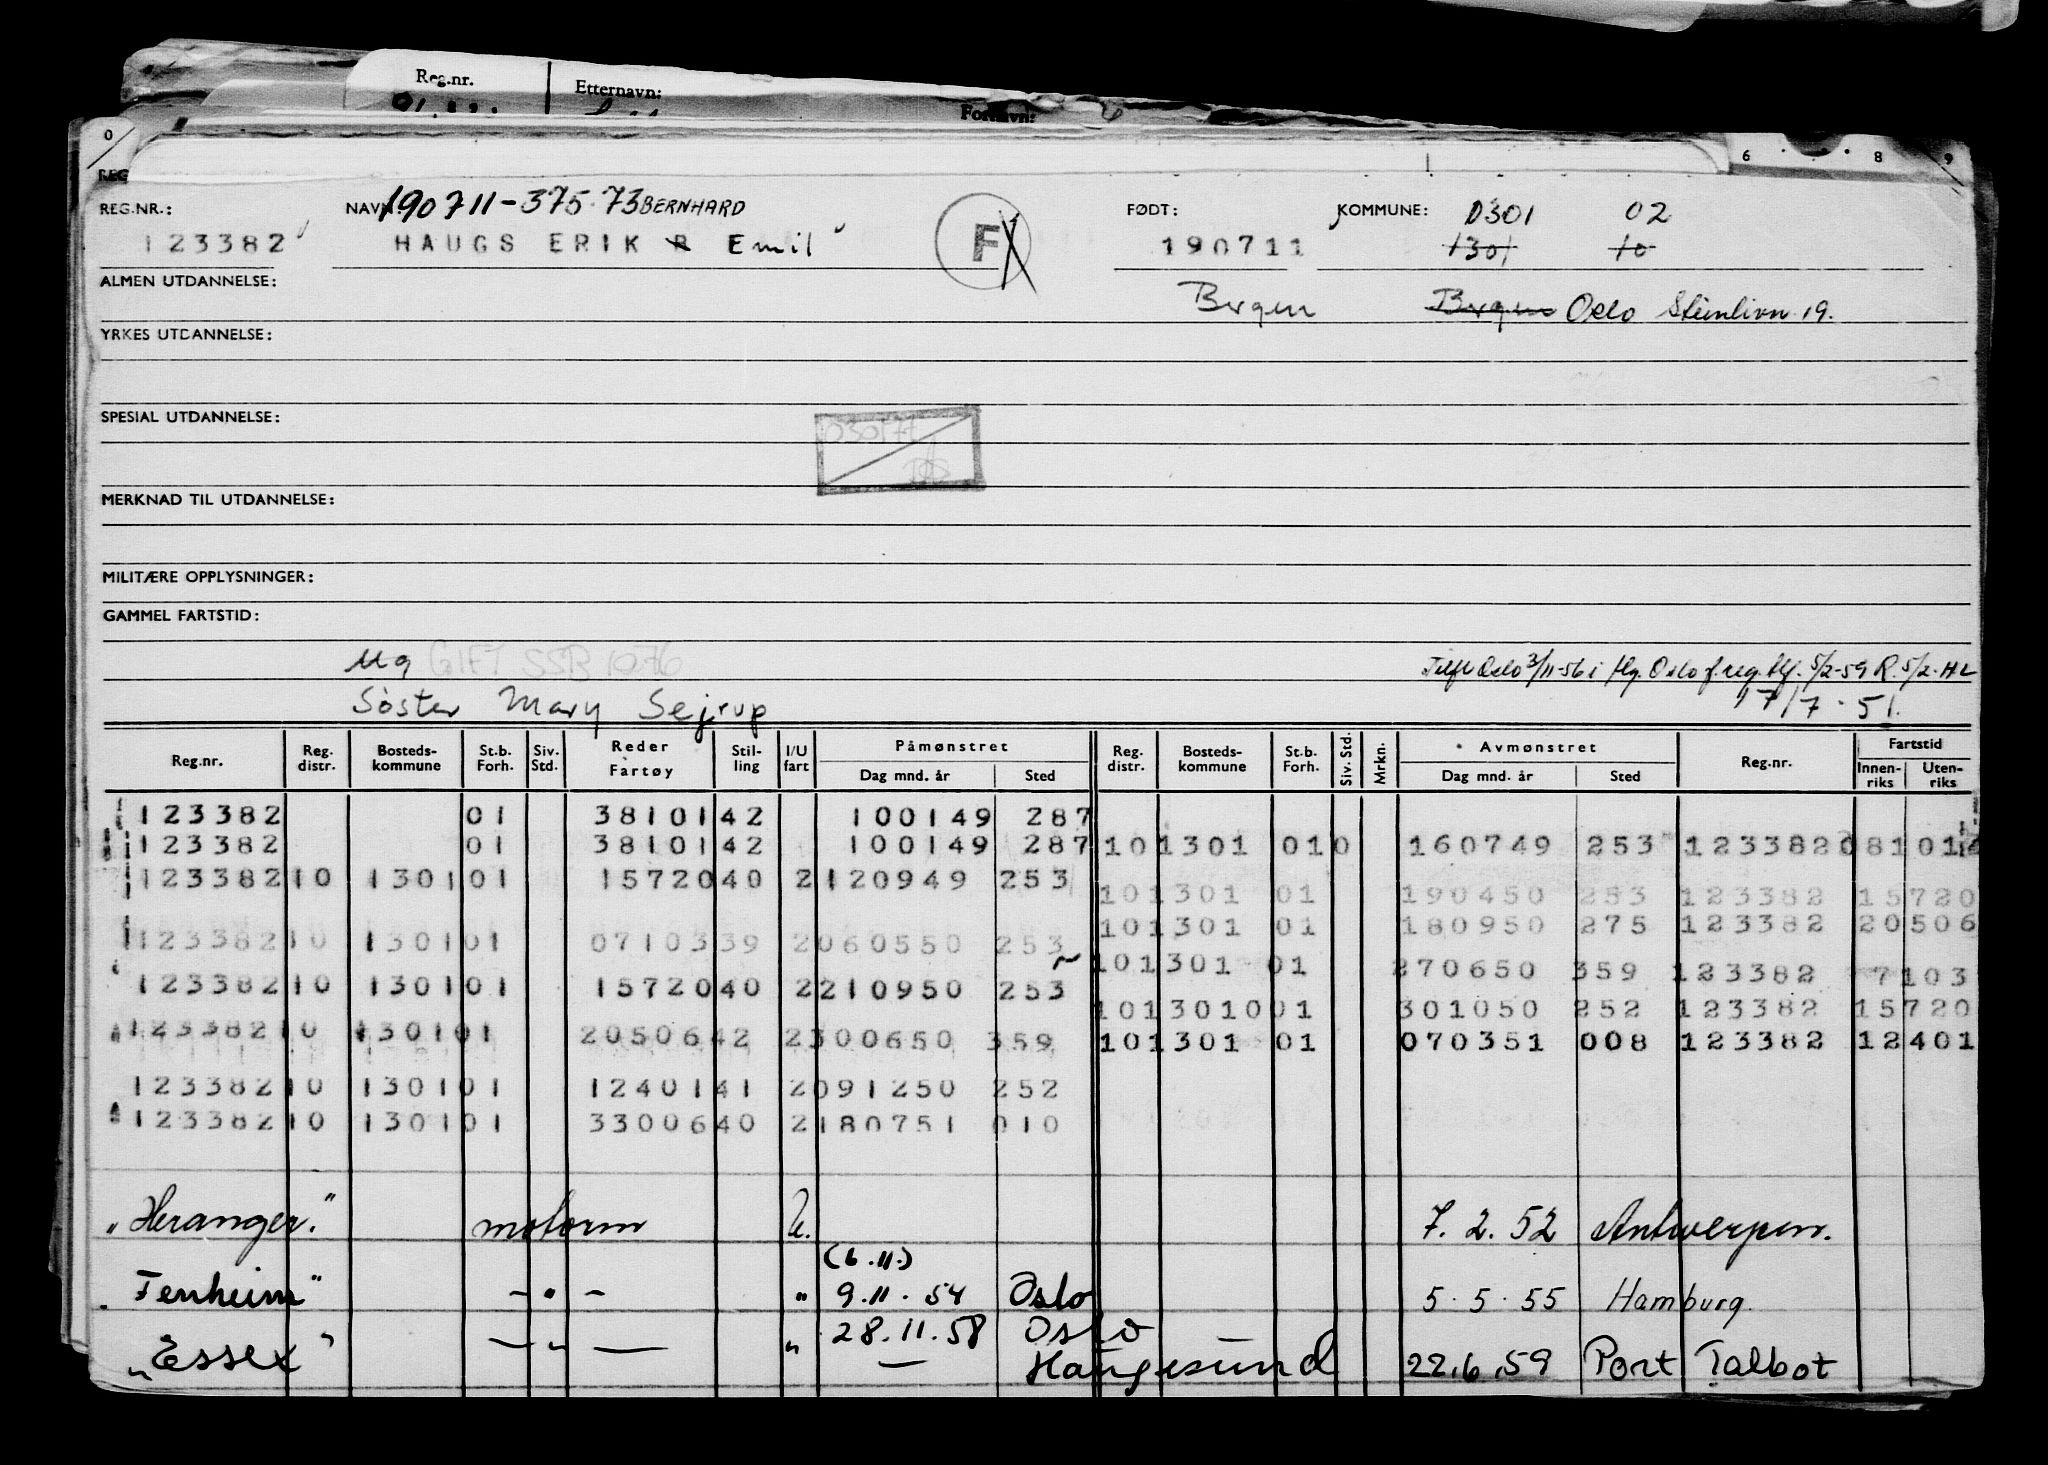 Reg.nr. Etternavn: Fornavn:
0 6 8 9
REG
REG.NR.: NAVN 190711-375-73 BERNHARD FØDT: KOMMUNE: 0301 02
123382 HAUGS ERIK B Emil F 190711 1301 10
ALMEN UTDANNELSE: Bergen Bergen Oslo Steinlivn 19.
YRKES UTDANNELSE:
SPESIAL UTDANNELSE:
030177
MERKNAD TIL UTDANNELSE:
MILITÆRE OPPLYSNINGER:
GAMMEL FARTSTID:
Ug GIFT SSB 1076 Oslo 3/11-56 i Hg. Oslo f. reg. 5/2-59 R. 5/2-
Søster Mary Sejrup 17/7-51.
Reg.nr. Reg. distr. Bosteds-kommune St.b. Forh. Siv. Std. Reder Fartøy Stil-ling I/U fart Påmønstret Dag mnd. år Sted Reg. distr. Bosteds-kommune St.b. Forh. Siv. Std. Mrkn. Avmønstret Dag mnd. år Sted Reg.nr. Fartstid Innen-riks Uten-riks
123382 01 38101 42 100149 287
123382 01 38101 42 100149 287 10 1301 01 0 160749 253 123382 081 01
123382 10 1301 01 15720 40 2 120949 253
10 1301 01 190450 253 123382 15720
10 1301 01 180950 275 123382 20506
123382 10 1301 01 07103 39 2 060550 253
10 1301 01 270650 359 123382 7103
123382 10 1301 01 15720 40 2 210950 253
10 1301 0 01 301050 252 123382 15720
123382 10 1301 01 20506 42 2 300650 359
10 1301 01 070351 008 123382 12401
123382 10 1301 01 12401 41 2 091250 252
123382 10 1301 01 33006 40 2 180751 010
„Heranger." motorm U. 7.2.52 Antwerpen.
(6.11.)
„Fernheim" -"- " 9.11.54 Oslo 5.5.55 Hamburg.
28.11.58 Oslo
„Essex" -"- " — Haugesund 22.6.59 Port Talbot